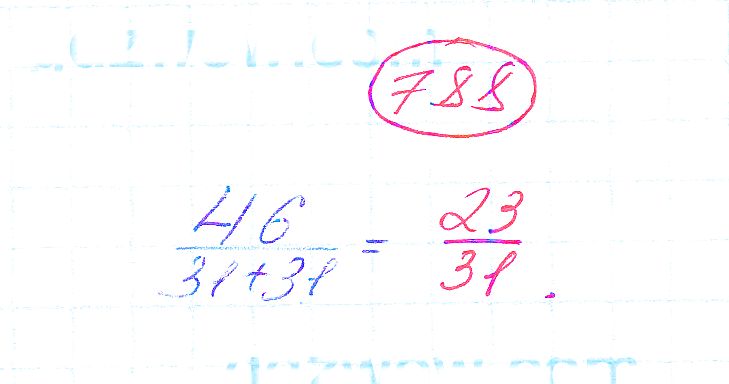 788
46/(31+31) = 23/31.